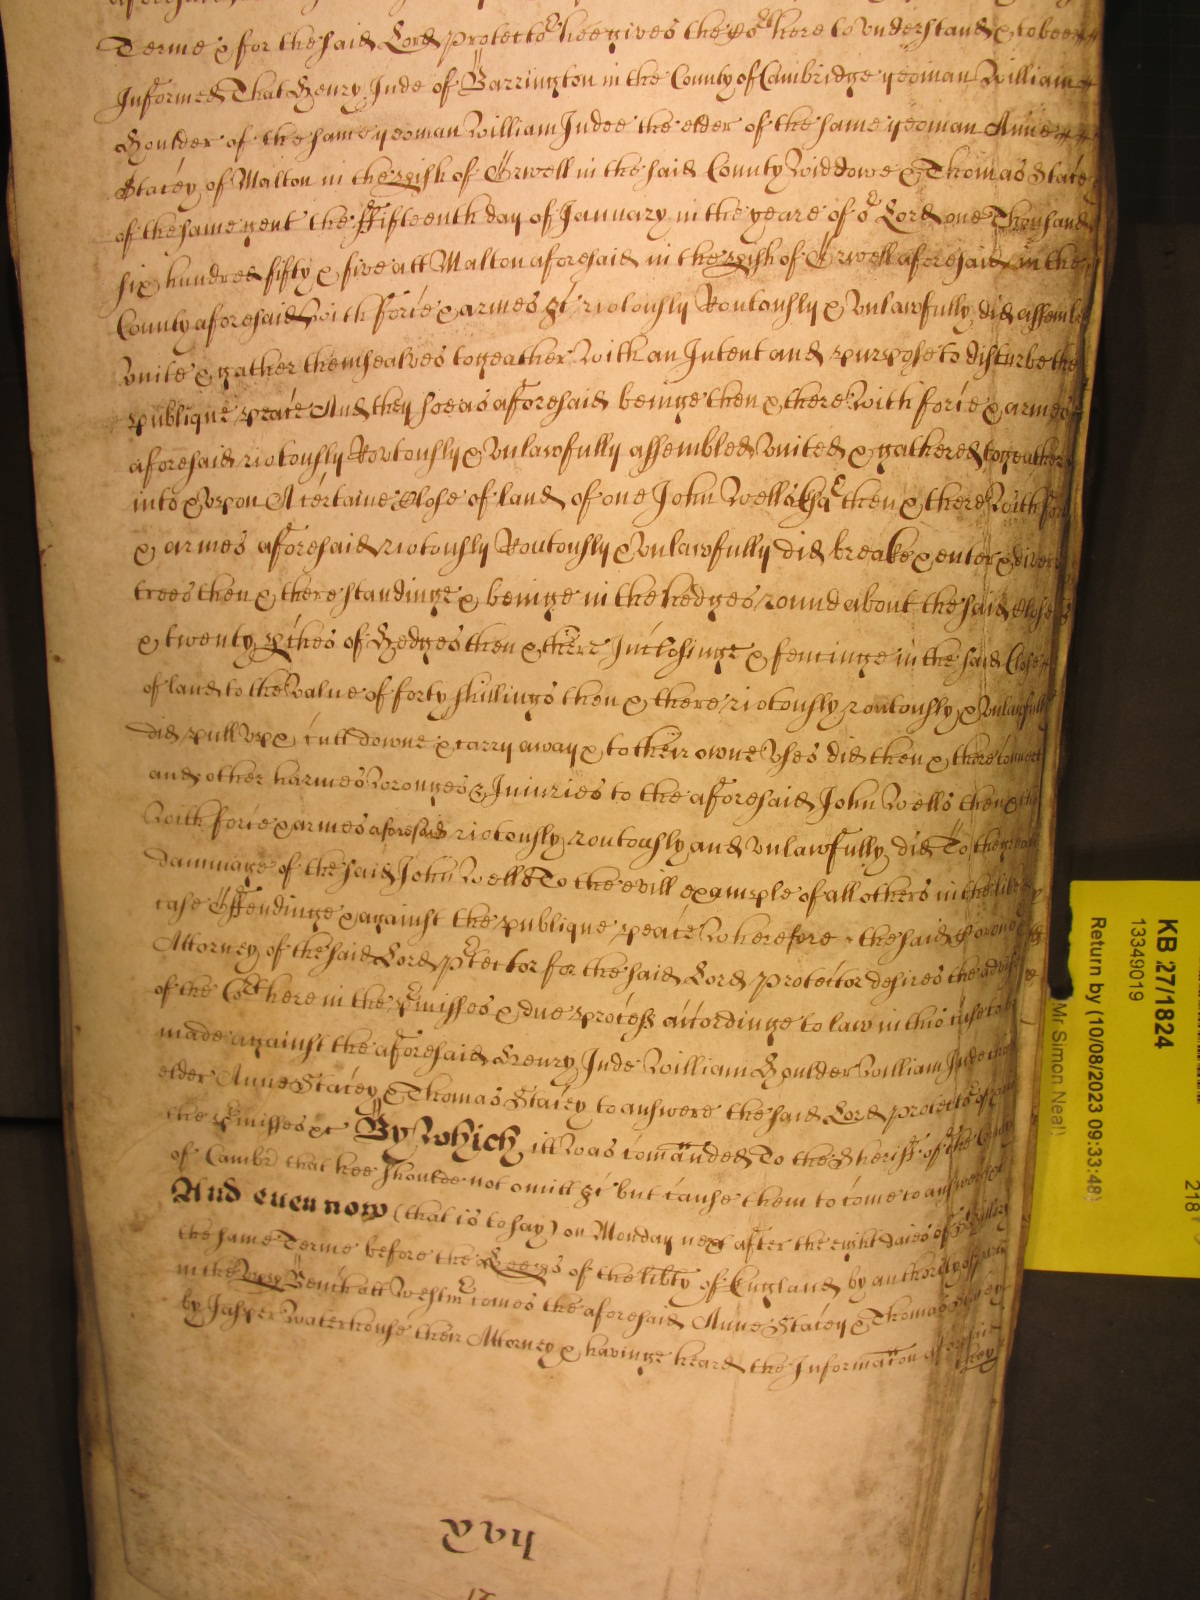 Terme & for the said Lord Protector hee gives the Cort here to understand & to bee
Informed That Henry Jude of Barrington in the County of Cambridge yeoman William
Goulder of the same yeoman William Judee the elder of the same yeoman Anne
Stacey of Malton in the pish of Orwell in the said County Widdowe & Thomas Stacey
of the same gent the ffifteenth day of January in the yeare of or Lord one Thousand
six hundred fifty & five att Malton aforesaid in the pish of Orwell aforesaid in the
County aforesaid with force & armes &c riotously Routously & Unlawfully did assemble
Unite & gather themsealves togeather With an Intent and purpose to disturbe the
publique peace And they soe as aforesaid beinge then & there With force & armes
aforesaid riotously Routously & Unlawfully assembled United & gathered togeather
into & Upon A certaine Close of land of one John Wells then & there With force
& armes aforesaid riotously Routously & Unlawfully did breake & enter & divers
trees then & there standinge & beinge in the hedges round about the said Close
& twenty pches of Hedges then & there Inclosinge & fencinge in the said Close
of land to the Value of forty shillings then & there riotously routously & Unlawfully
did pull Up & cutt downe & carry away & to their owne Uses did then & there convert
and other harmes Wronges & Injuries to the aforesaid John Wells then &
With force & armes aforesaid riotously routously and Unlawfully did To the great
dammage of the said John Wells To the evill example of all others in the like
case Offendinge & against the publique peace Wherefore the said
Attorney of the said Lord Ptector for the said Lord Protector desires the advise
of the Cort here in the Pmisses & due process accordinge to law in this case to be
made against the aforesaid Henry Jude William Goulder William Jude the
elder Anne Stacey & Thomas Stacey to answere the said Lord Protector
the Pmisses &c By Which itt Was comanded To the Sheriff of the County
of Cambr that hee shoulde not omitt &c but cause them to come to answere
And even now (that is to say) on Monday next after the eight daies of
the same Terme before the Keeps of the libty of England by authority of
in the Upp Bench att Westmr comes the aforesaid Anne Stacey & Thomas Stacey
by Jasper Waterhouse their Attorney & havinge heard the Informacon aforesaid
they
had
KB 27/1824
13349019
Return by (10/08/2023 09:33:48)
Mr Simon Neal)